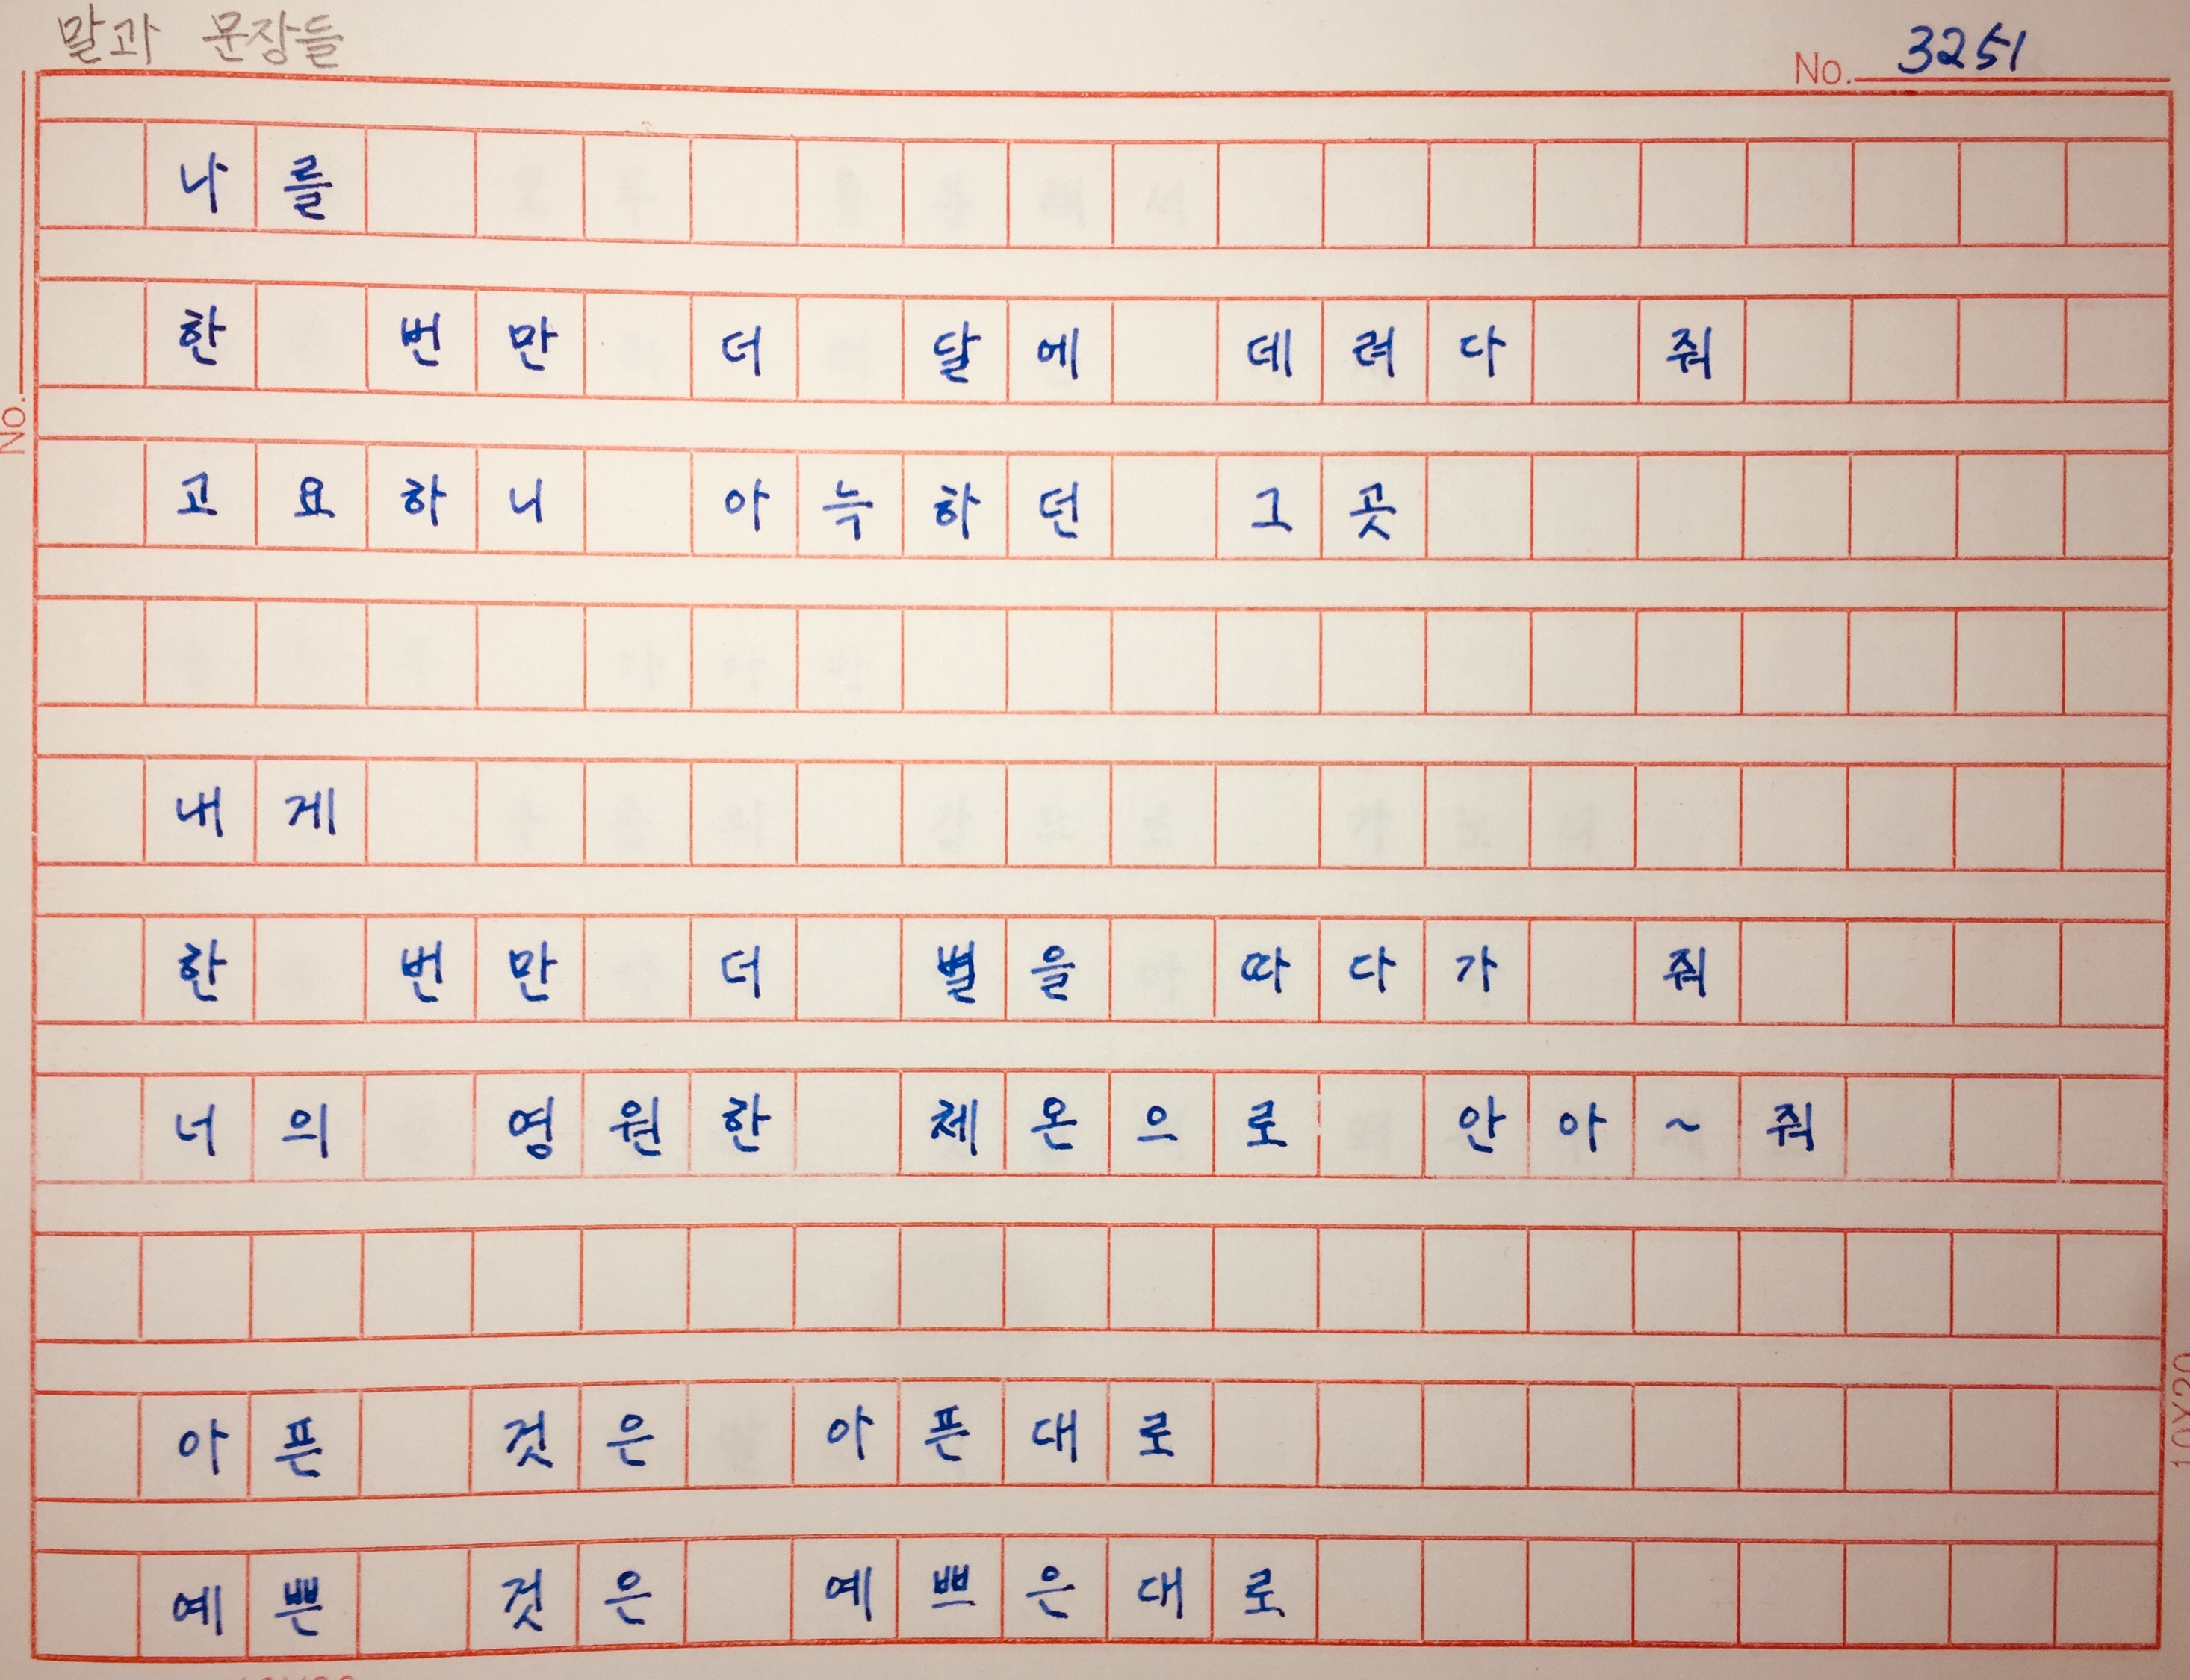 말과 문장들
No. 3251
나를
한 번만 더 달에 데려다 줘
No.
고요하니 아늑하던 그곳
내게
한 번만 더 별을 따다가 줘
너의 영원한 체온으로 안아~줘
아픈 것은 아픈대로
10X20
예쁜 것은 예쁘은대로